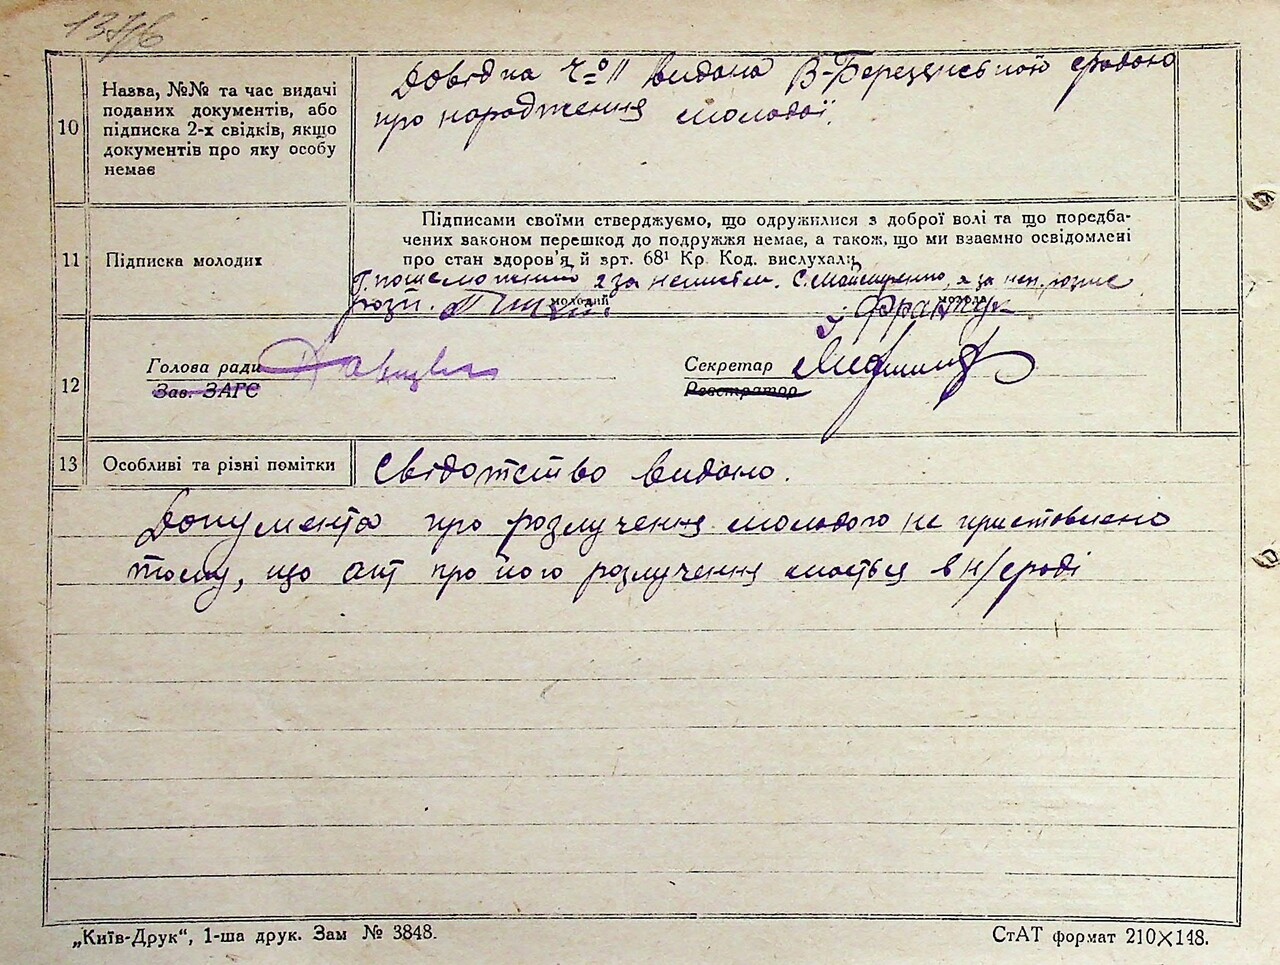 137/6
10
Назва, №№ та час видачі
поданих документів, або
підписка 2-х свідків, якщо
документів про яку особу
немає
Довідка ч-о 11 видана В-Березянською срадою
про народження молодої.
11
Підписка молодих
Підписами своїми стверджуємо, що одружилися з доброї волі та що поредба-
чених законом перешкод до подружжя немає, а також, що ми взаємно освідомлені
про стан здоров'я, й зрт. 68¹ Кр. Код. вислухали
а за неписьм. я за неп. розпис
розп.
молодий
молода
12
Голова ради
Зав. ЗАГС
Секретар
Реєстратор
13
Особливі та різні помітки
Свідотство видано.
Документа про розлучення молодого не приставлено
тому, що акт про його розлучення мається в н/сраді
„Київ-Друк“, 1-ша друк. Зам № 3848.
СтАТ формат 210×148.